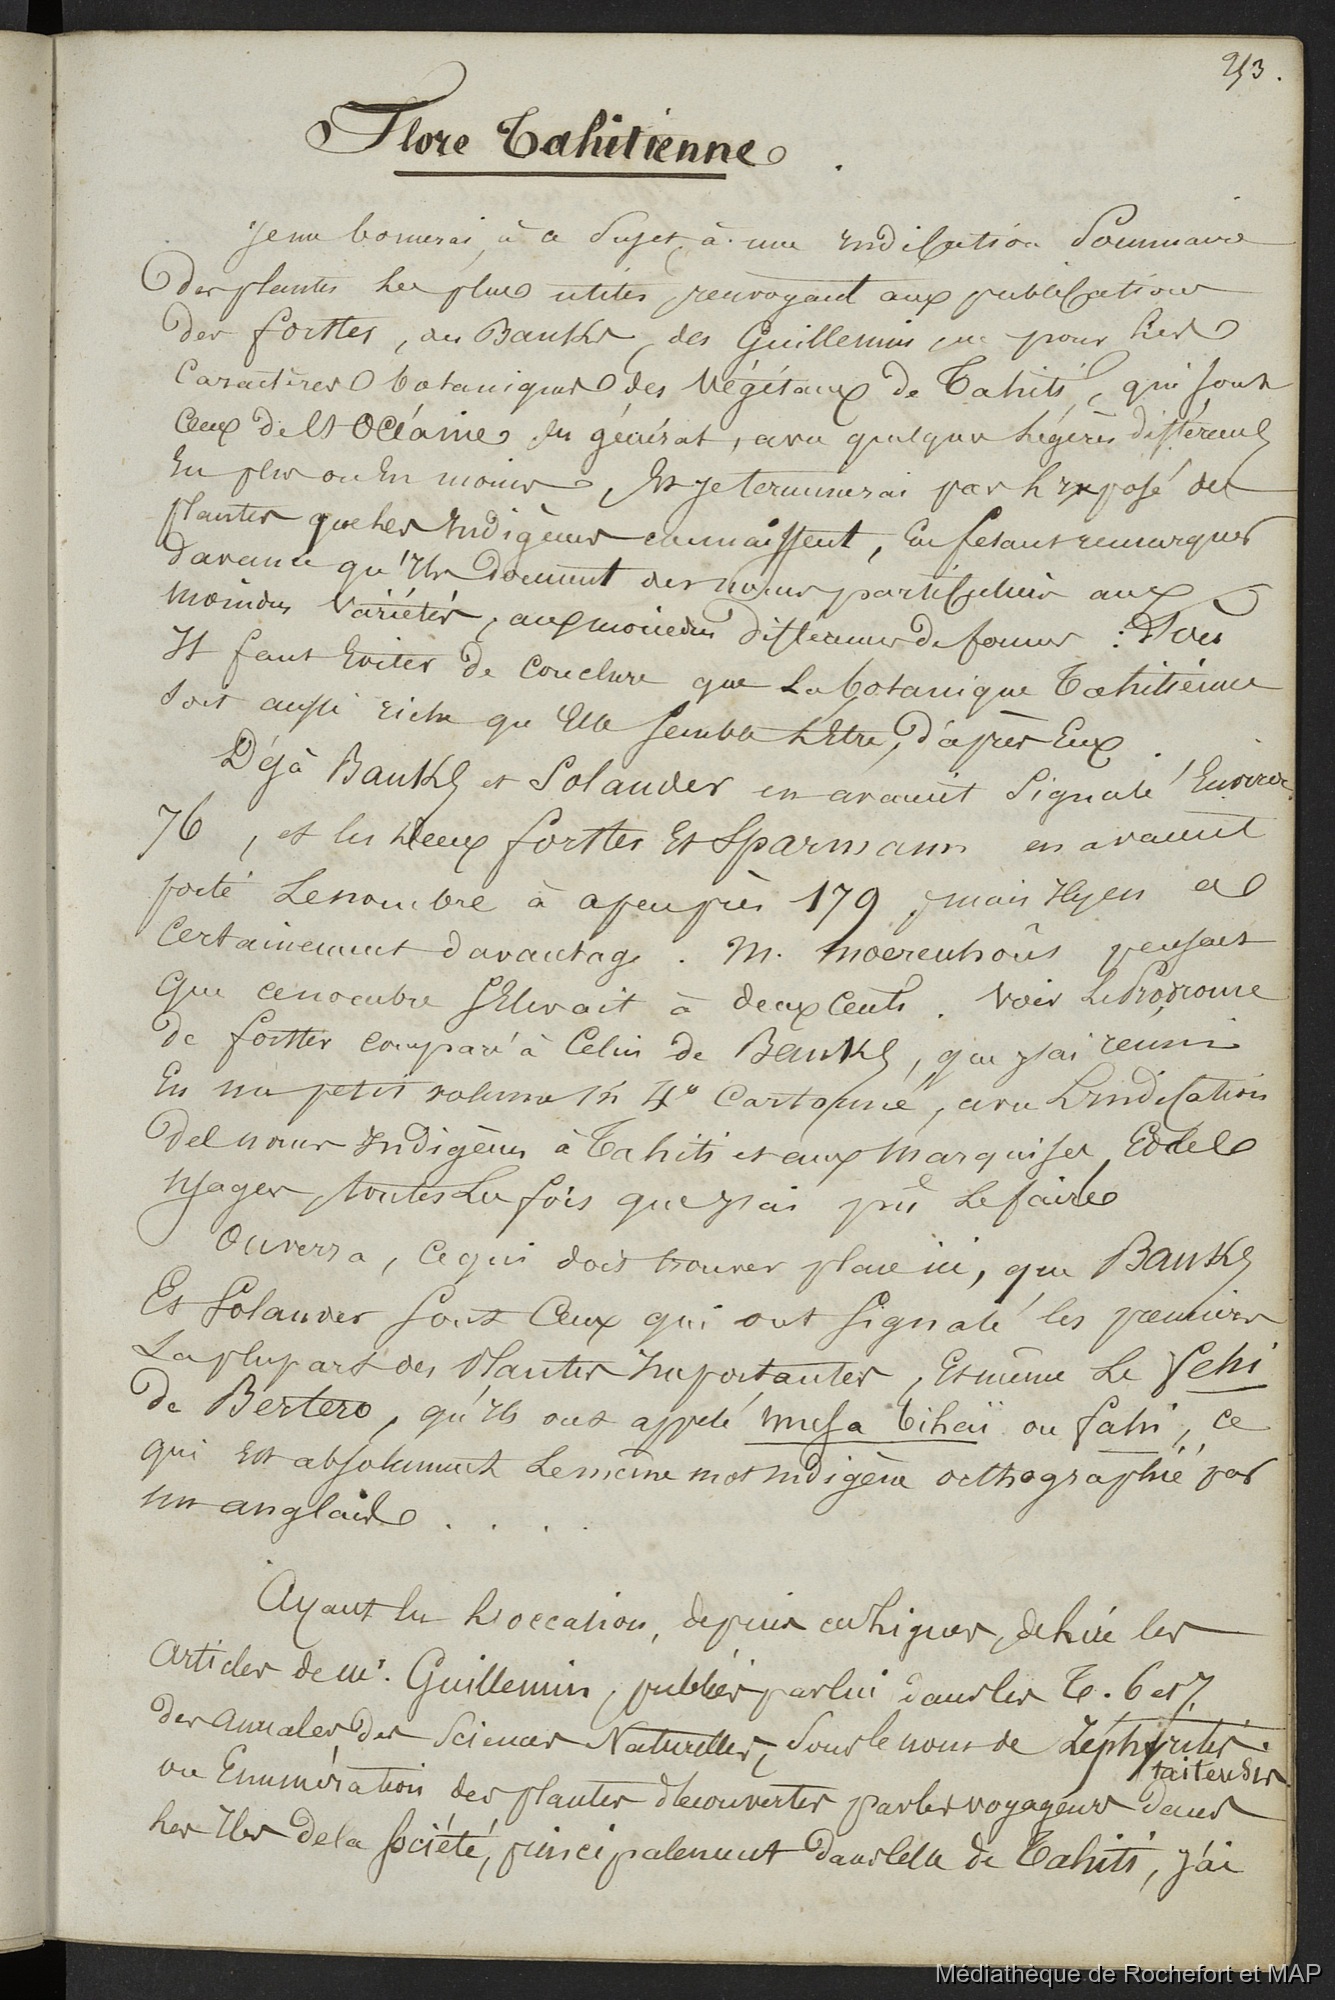 253.
Flore Tahitienne.
Je me bornerai, à ce sujet, à une indication sommaire
des plantes les plus utiles, renvoyant aux publications
des forster, des Banks, des Guillemin, pour les
caractères botaniques des végétaux de Tahiti, qui sont
ceux de l'Océanie en général, avec quelques légères différences
En plus ou En moins, Et je terminerai par l'exposé des
plantes que les Indigènes connaissent, En fesant remarquer
d'avance qu'Ils donnent des noms particuliers aux
moindres variétés, aux moindres différences de formes :
Il faut Eviter de conclure que La botanique Tahitienne
soit aussi riche qu'Elle semble L'Etre, d'après Eux.
Déjà Banks et Solander en avaient signalé Environ
76, et les deux forster Et Sparmann en avaient
porté Le nombre à apeuprès 179, mais Il y en a
certainement davantage. M. Moerenhoüs pensait
que ce nombre s'Elevait à deux cents. Voir Le Prodrome
de forster comparé à Celui de Banks, que j'ai reuni
En un petit volume in 4° cartonné, avec L'indication
des noms Indigènes à Tahiti et aux Marquises, Et des
usages, toutes Les fois que j'ai pû Le faire
On verra, ce qui doit trouver place ici, que Banks
Et Solander sont Ceux qui ont signalé les premiers
La plupart des Plantes Importantes, Et même Le fehi
de Bertero, qu'Ils ont appelé musa bihaï ou fahi, ce
qui Est absolument Le même mot indigène orthographié par
un anglais . . . .
Ayant Eu L'occasion, depuis ces Lignes, de Lire les
articles de Mr. Guillemin, publiés par lui dans les T. 6 et 7
des annales des Sciences Naturelles, sous le nom de Zephyritis
taitensis
ou Enumération des plantes découvertes par les voyageurs dans
Les Iles de la Société, principalement dans celle de Tahiti, j'ai
Médiathèque de Rochefort et MAP